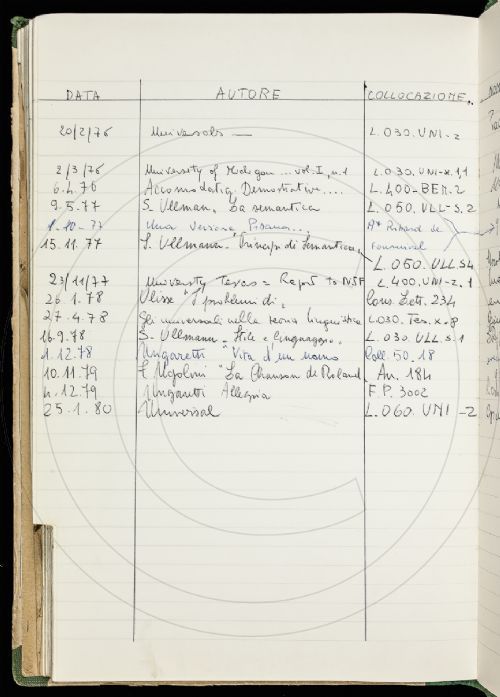 DATA AUTORE COLLOCAZIONE
20/2/76 Universals — L.030.UNI-2
2/3/76 University of Michigan ... vol. I, n.1 L.030.UNI-x.1,1
6.4.76 Demostrative.... L.400-BER.2
9.5.77 S. Ullman. La semantica L.050.ULL-S.2
1.10-77 Una versione Pisana... Richard de Fournival
15.11.77 S. Ullmann. Principi di Semantica, L.050.ULL.S4
23/11/77 University Texas = Report to NSF L.400.UNI-2.1
26.1.78 Ulisse "I problemi di" Cons. Lett. 234
27-4.78 Gli universali nella teoria linguistica L.030.Tes.x-8
16.9.78 S. Ullmann. "Stile e linguaggio" L.030.ULL S.1
1.12.78 Ungaretti "Vita d'un uomo Coll. 50.18
10.11.79 Ugolini "La Chanson de Roland An. 184
4.12.79 Ungaretti Allegria F.P. 3002
25.1.80 Universal L.060.UNI-2